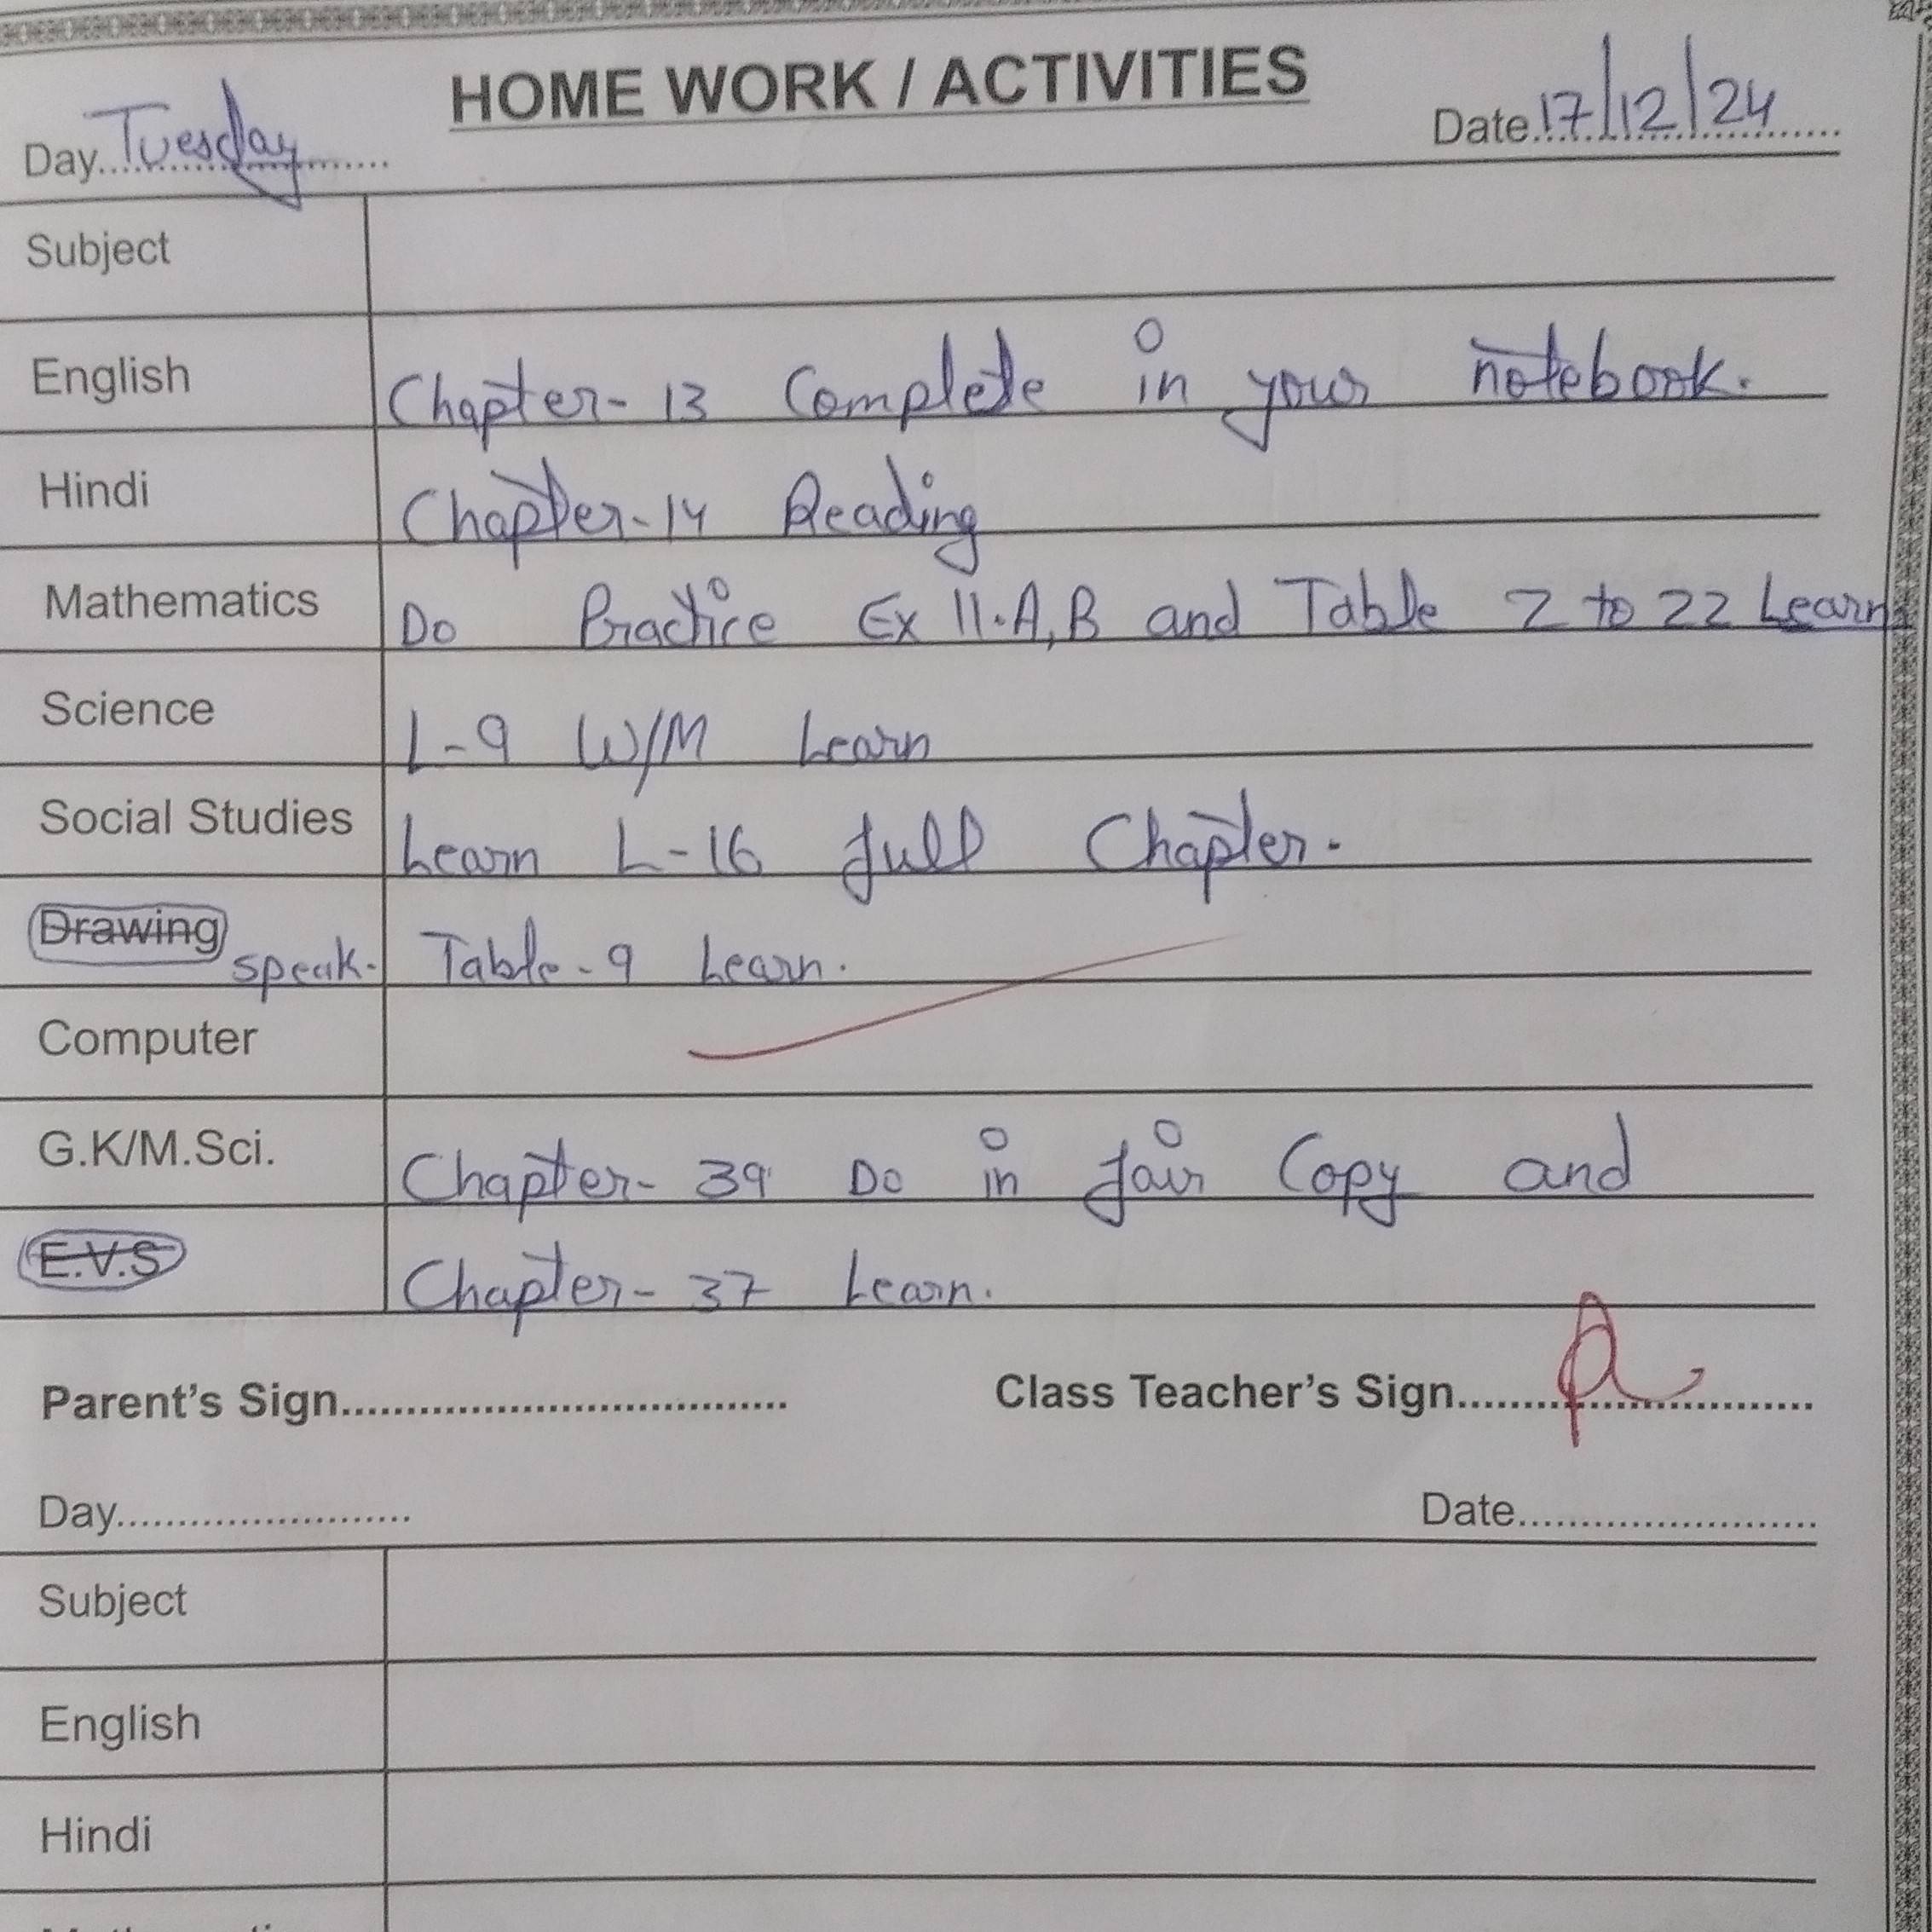 HOME WORK / ACTIVITIES
Day Tuesday Date 17/12/24
Subject
English Chapter-13 Complete in your notebook.
Hindi Chapter-14 Reading
Mathematics Do Practice Ex 11.A,B and Table 2 to 22 Learn
Science L-9 W/M Learn
Social Studies Learn L-16 full Chapter.
Drawing speak. Table-9 Learn.
Computer
G.K/M.Sci. Chapter-39 Do in fair Copy and
E.V.S Chapter-37 Learn.
Parent's Sign Class Teacher's Sign
Day Date
Subject
English
Hindi